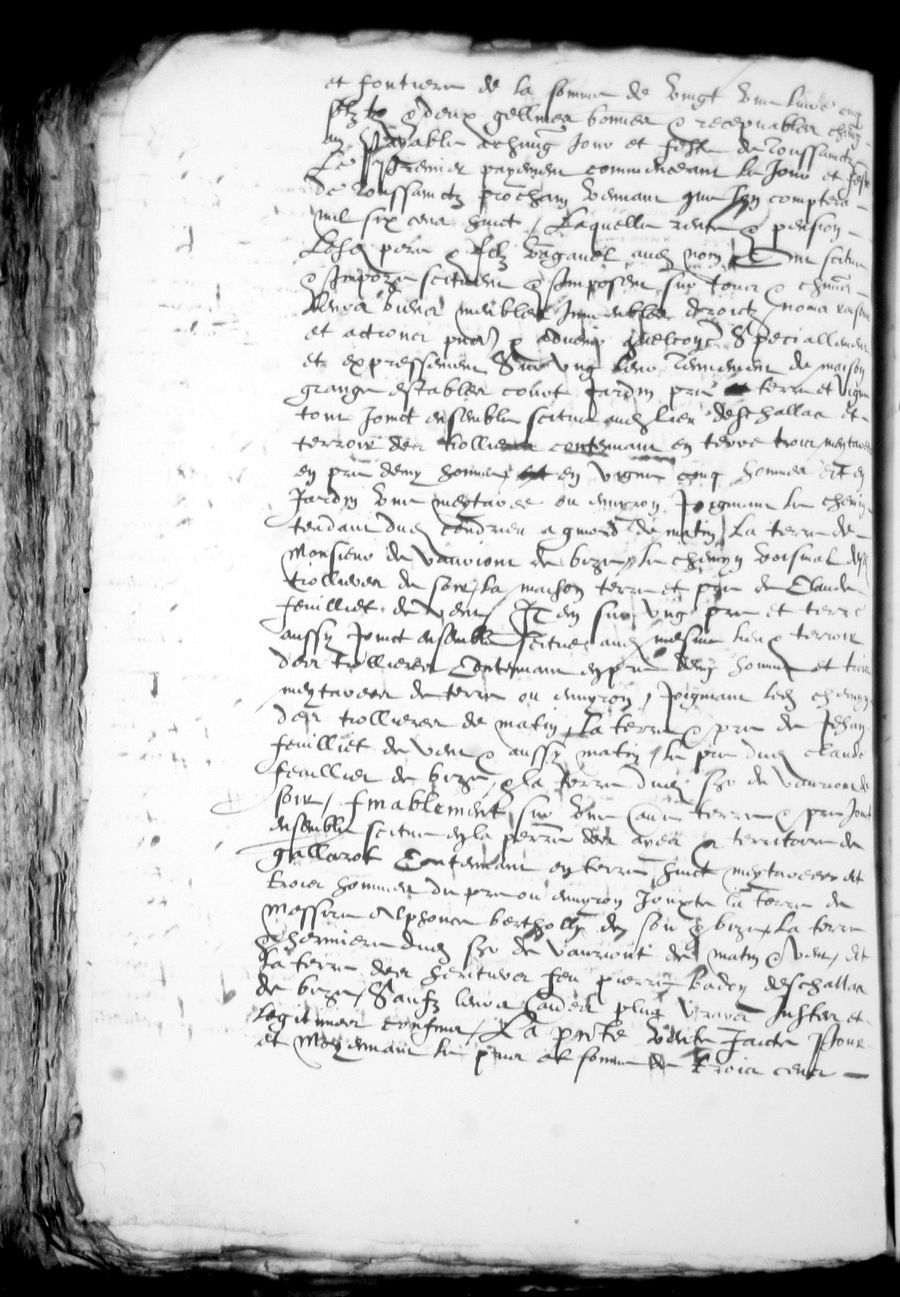 et fontiere de la somme de vingt une livre cinq
solz tz & deux gellines bonnes & recepvables chung
an payable a chung jour et feste de toussainctz
Le premier payement commenceant le jour et feste
de toussainctz prochain venant que lon comptera
mil six cens huict / Laquelle rente & pension
Lesd pere & filz ausd nom ont scitue
& Impoze scituent & Imposent sur tous & chung
leurs biens meubles Immeubles droictz noms raisons
et actions pntz & advenir quelconq Speciallement
et expressement sur ung leur tenement de maison
grange estables court Jardin pre terre et vigne
tout Joinct ensemble scitue aud lieu deschallas et
terroir des trollieres contenant en terre trois meytarees
en pre demy homme et en vigne cinq hommes et en
Jardin une meytaree ou environ Joignant le chemin
tendant de condrieu a de matin La terre de
Monsieur de vaurion de bize le chemyn voisinal desd
trollieres de soir / La maison terre et pre de Claude
feuilliet de vent / Item sur ung pre et terre
aussy Joinct ensemble scitue aud mesme lieu & terroir
des trollieres Contenant en pre demy homme et trois
meytarees de terre ou environ / Joignant led chemyn
des trollieres de matin / La terre & pre de Jehan
feuilliet de vent & aussy matin / le pre dud claude
feuillier de bize / & la terre dud Sr de vaurion de
soir / finablement sur une terre & pre Joinct
ensemble scitue en la perre des ayes & territoire de
gallarot Contenant en terre huict meytarees et
trois hommes de pre ou environ Jouxte la terre de
Messire Alphonce bertholly de soir & bize / La terre
& dud Sr de vauriont de matin & vent / et
La terre des heritiers feu pierre badey deschallas
de bize / Saufz leurs plus vrays Justes et
legitimes confins / La pnte vente faicte pour
et Moyenant le pris et somme de trois cens